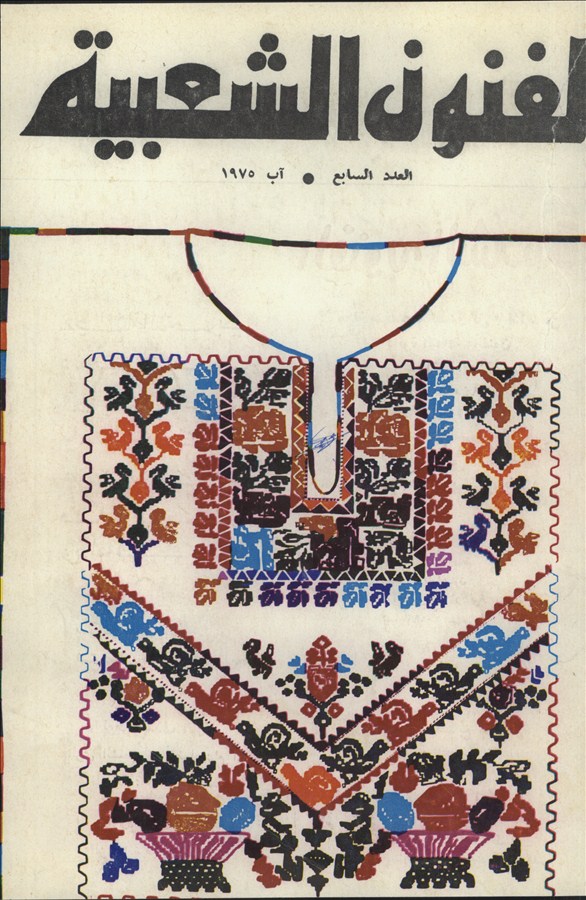 لفنون الشعبية
العدد السابع ● آب ١٩٧٥